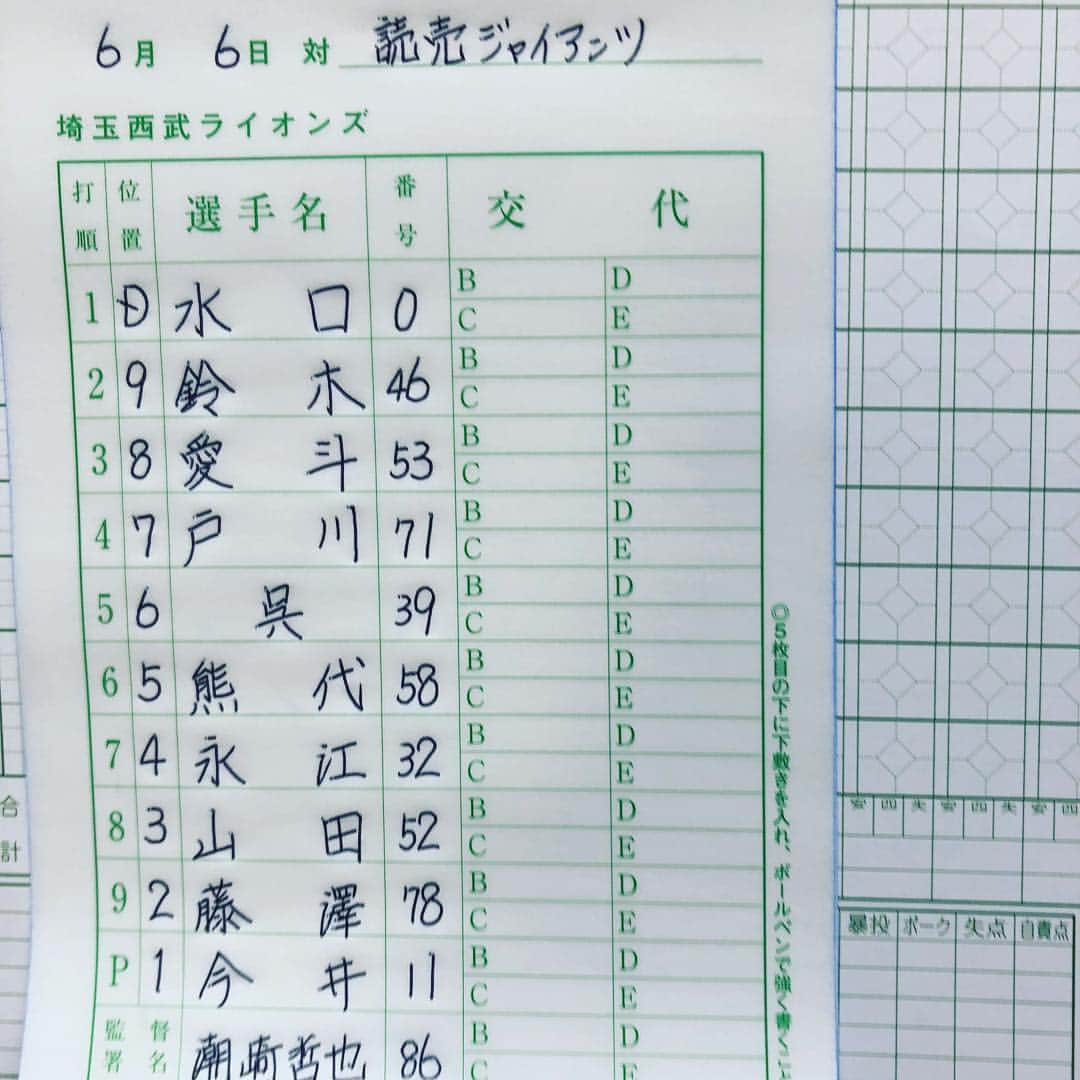 6月 6日 対 読売ジャイアンツ
埼玉西武ライオンズ
打順 位置 選手名 番号 交代
1 D 水口 0 B D C E
2 9 鈴木 46 B D C E
3 8 愛斗 53 B D C E
4 7 戸川 71 B D C E
5 6 呉 39 B D C E
6 5 熊代 58 B D C E
7 4 永江 32 B D C E
8 3 山田 52 B D C E
9 2 藤澤 78 B D C E
P 1 今井 11 B D C E
監督署名 潮崎哲也 86 B D C E
◎5枚目の下に下敷きを入れ、ボールペンで強く書くこと
合計
安 四 失 安 四 失 安 四
暴投 ボーク 失点 自責点